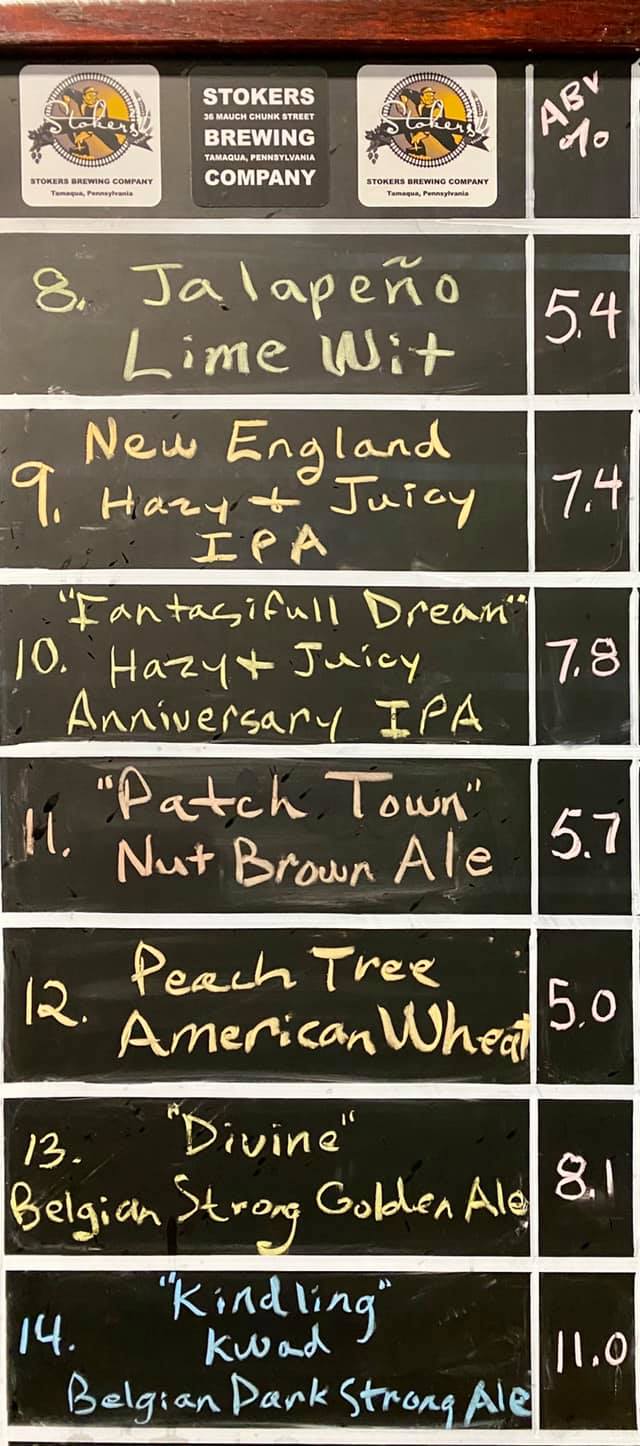 Stokers
STOKERS BREWING COMPANY
Tamaqua, Pennsylvania
STOKERS
36 MAUCH CHUNK STREET
BREWING
TAMAQUA, PENNSYLVANIA
COMPANY
Stokers
STOKERS BREWING COMPANY
Tamaqua, Pennsylvania
ABV
%
8. Jalapeño
Lime Wit
5.4
New England
9. Hazy + Juicy
IPA
7.4
"Fantasifull Dream"
10. Hazy + Juicy
Anniversary IPA
7.8
"Patch Town"
11. Nut Brown Ale
5.7
Peach Tree
12. American Wheat
5.0
13. "Divine"
Belgian Strong Golden Ale
8.1
"Kindling"
14. Kwad
Belgian Dark Strong Ale
11.0